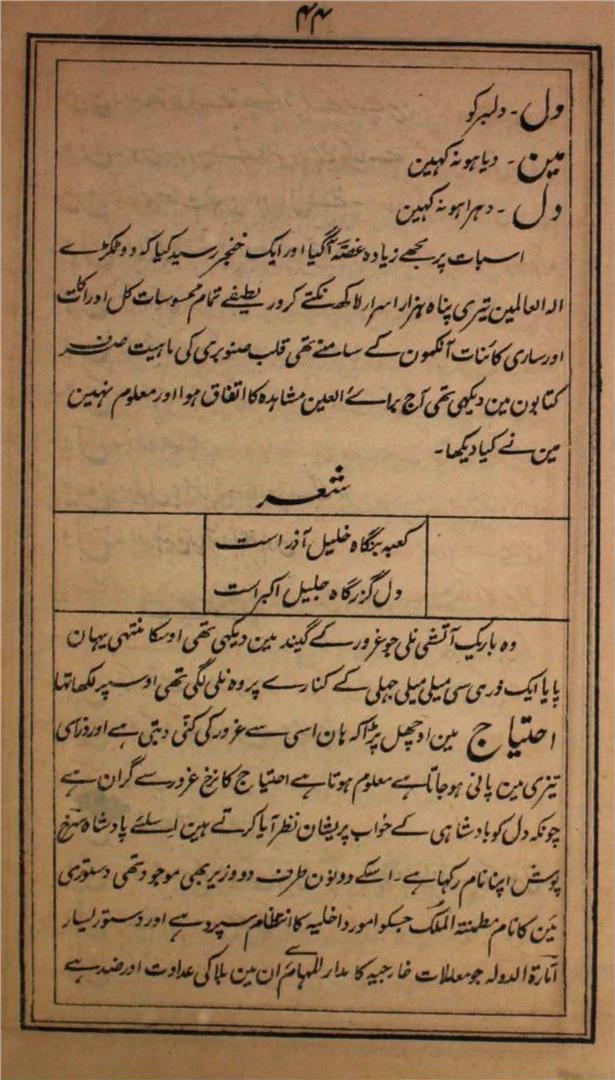 ۴۴
دل ۔ دلبر کو
مین ۔ دیا ہو نہ کہین
دل ۔ دہرا ہو نہ کہین
اسبات پر مجھے زیادہ غصّہ آگیا اور ایک خنجر رسید کیا کہ دو ٹکڑے
الہ العالمین تیری پناہ ہزار اسرار لاکھ نکتے کرور لطیفے تمام محسوسات کل ادراکات
اور ساری کائنات آنکھون کے سامنے تھی قلب صنوبری کی ماہیت صرف
کتابون مین دیکھی تھی آج براے العین مشاہدہ کا اتفاق ہوا اور معلوم نہین
مین نے کیا دیکھا ۔
شعر
کعبہ بنگاہ خلیل آذر است
دل گزرگاہ جلیل اکبر است
وہ باریک آتشی نلی جو غرور کے گیند مین دیکھی تھی اوسکا منتہی یہان
پایا ایک ذری سی میلی میلی جہلی کے کنارے پر وہ نلی لگی تھی اوسپر لکھا تہا
احتیاج مین اوچھل پڑا کہ ہان اسی سے غرور کی کنّی دبتی ہے اور ذرا سی
تیزی مین پانی ہوجاتا ہے معلوم ہوتا ہے احتیاج کا نرخ غرور سے گران ہے
چونکہ دل کو بادشاہی کے خواب پریشان نظر آیا کرتے ہین اسلئے پادشاہ سرخ
پوش اپنا نام رکہا ہے ۔ اسکے دونون طرف دو وزیر بھی موجود تھی دستوری
یمین کا نام مطمئنۃ الملک جسکو امور داخلیہ کا انتظام سپرد ہے اور دستور یسار
امّارۃ الدولہ جو معاملات خارجیہ کا مدار المہام ہے ان مین بلا کی عداوت اور ضد ہے